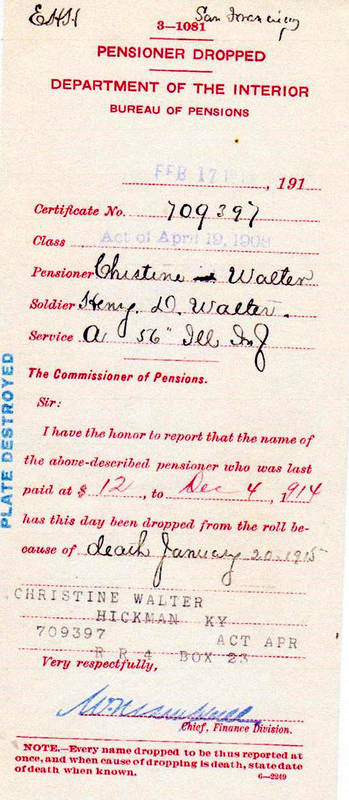 EHH San Francisco
3—1081
PENSIONER DROPPED
DEPARTMENT OF THE INTERIOR
BUREAU OF PENSIONS
FEB 17, 191
Certificate No. 709397
Class Act of April 19, 1908
Pensioner Christine Walter
Soldier Henry D. Walter.
Service A 56" Ill Inf
The Commissioner of Pensions.
Sir:
I have the honor to report that the name of
the above-described pensioner who was last
paid at $ 12, to Dec 4, 1914
has this day been dropped from the roll be-
cause of death January 20-1915
CHRISTINE WALTER
HICKMAN KY
709397 ACT APR
R R 4 BOX 23
Very respectfully,
Chief, Finance Division.
NOTE.—Every name dropped to be thus reported at
once, and when cause of dropping is death, state date
of death when known.
6—2249
PLATE DESTROYED